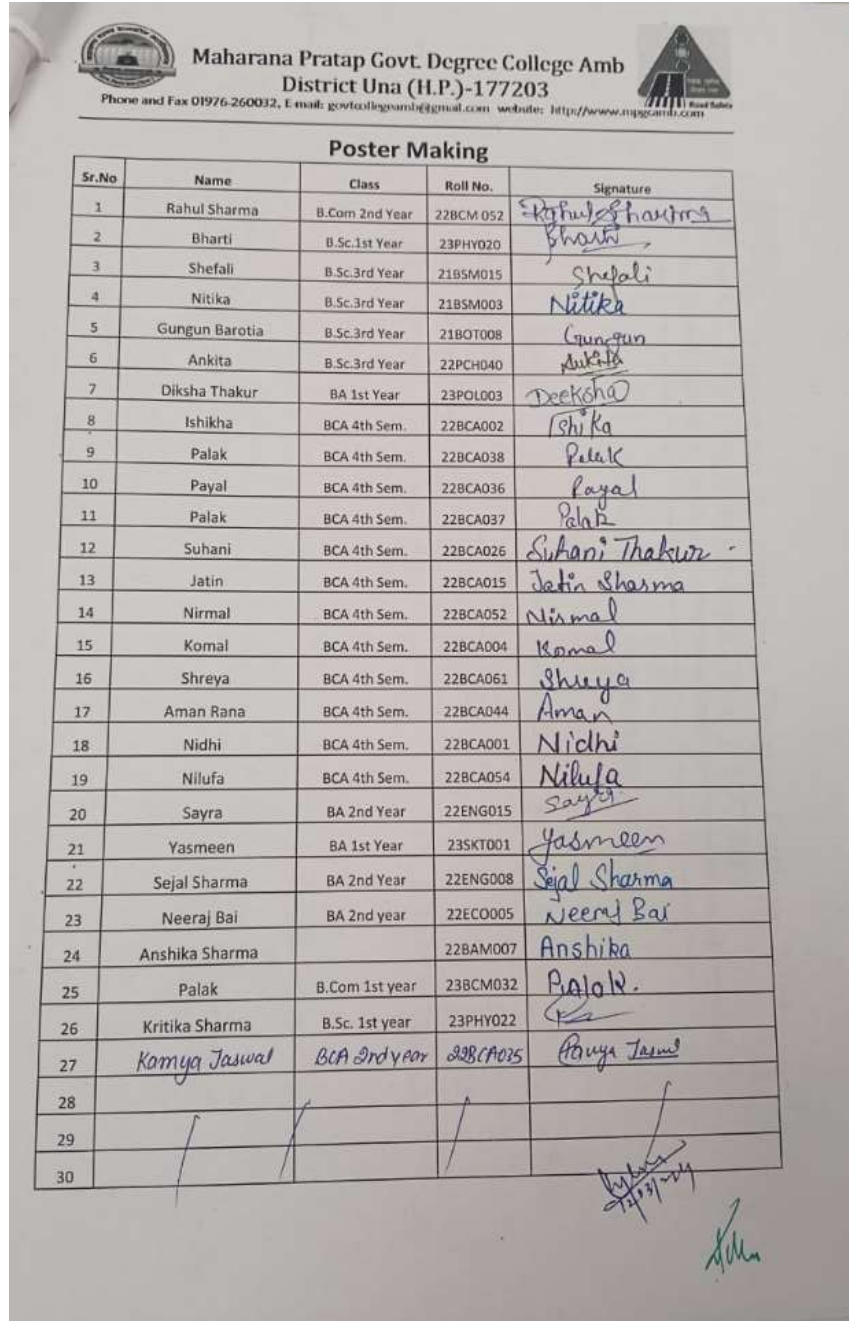 Maharana Pratap Govt. Degree College Amb
District Una (H.P.)-177203
Phone and Fax 01976-260032, E mail: govtcollegeamb@gmail.com website: http://www.mpgcamb.com
Road Safety
Poster Making
Sr.No Name Class Roll No. Signature
1 Rahul Sharma B.Com 2nd Year 22BCM 052 Rahul Sharma
2 Bharti B.Sc.1st Year 23PHY020 Bharti
3 Shefali B.Sc.3rd Year 21BSM015 Shefali
4 Nitika B.Sc.3rd Year 21BSM003 Nitika
5 Gungun Barotia B.Sc.3rd Year 21BOT008 Gungun
6 Ankita B.Sc.3rd Year 22PCH040 Ankita
7 Diksha Thakur BA 1st Year 23POL003 Deeksha
8 Ishikha BCA 4th Sem. 22BCA002 Ishika
9 Palak BCA 4th Sem. 22BCA038 Palak
10 Payal BCA 4th Sem. 22BCA036 Payal
11 Palak BCA 4th Sem. 22BCA037 Palak
12 Suhani BCA 4th Sem. 22BCA026 Suhani Thakur
13 Jatin BCA 4th Sem. 22BCA015 Jatin Sharma
14 Nirmal BCA 4th Sem. 22BCA052 Nirmal
15 Komal BCA 4th Sem. 22BCA004 Komal
16 Shreya BCA 4th Sem. 22BCA061 Shreya
17 Aman Rana BCA 4th Sem. 22BCA044 Aman
18 Nidhi BCA 4th Sem. 22BCA001 Nidhi
19 Nilufa BCA 4th Sem. 22BCA054 Nilufa
20 Sayra BA 2nd Year 22ENG015 Sayra
21 Yasmeen BA 1st Year 23SKT001 Yasmeen
22 Sejal Sharma BA 2nd Year 22ENG008 Sejal Sharma
23 Neeraj Bai BA 2nd year 22ECO005 Neeraj Bai
24 Anshika Sharma 22BAM007 Anshika
25 Palak B.Com 1st year 23BCM032 Palak.
26 Kritika Sharma B.Sc. 1st year 23PHY022
27 Kamya Jaswal BCA 2nd year 22BCA035
28
29
30